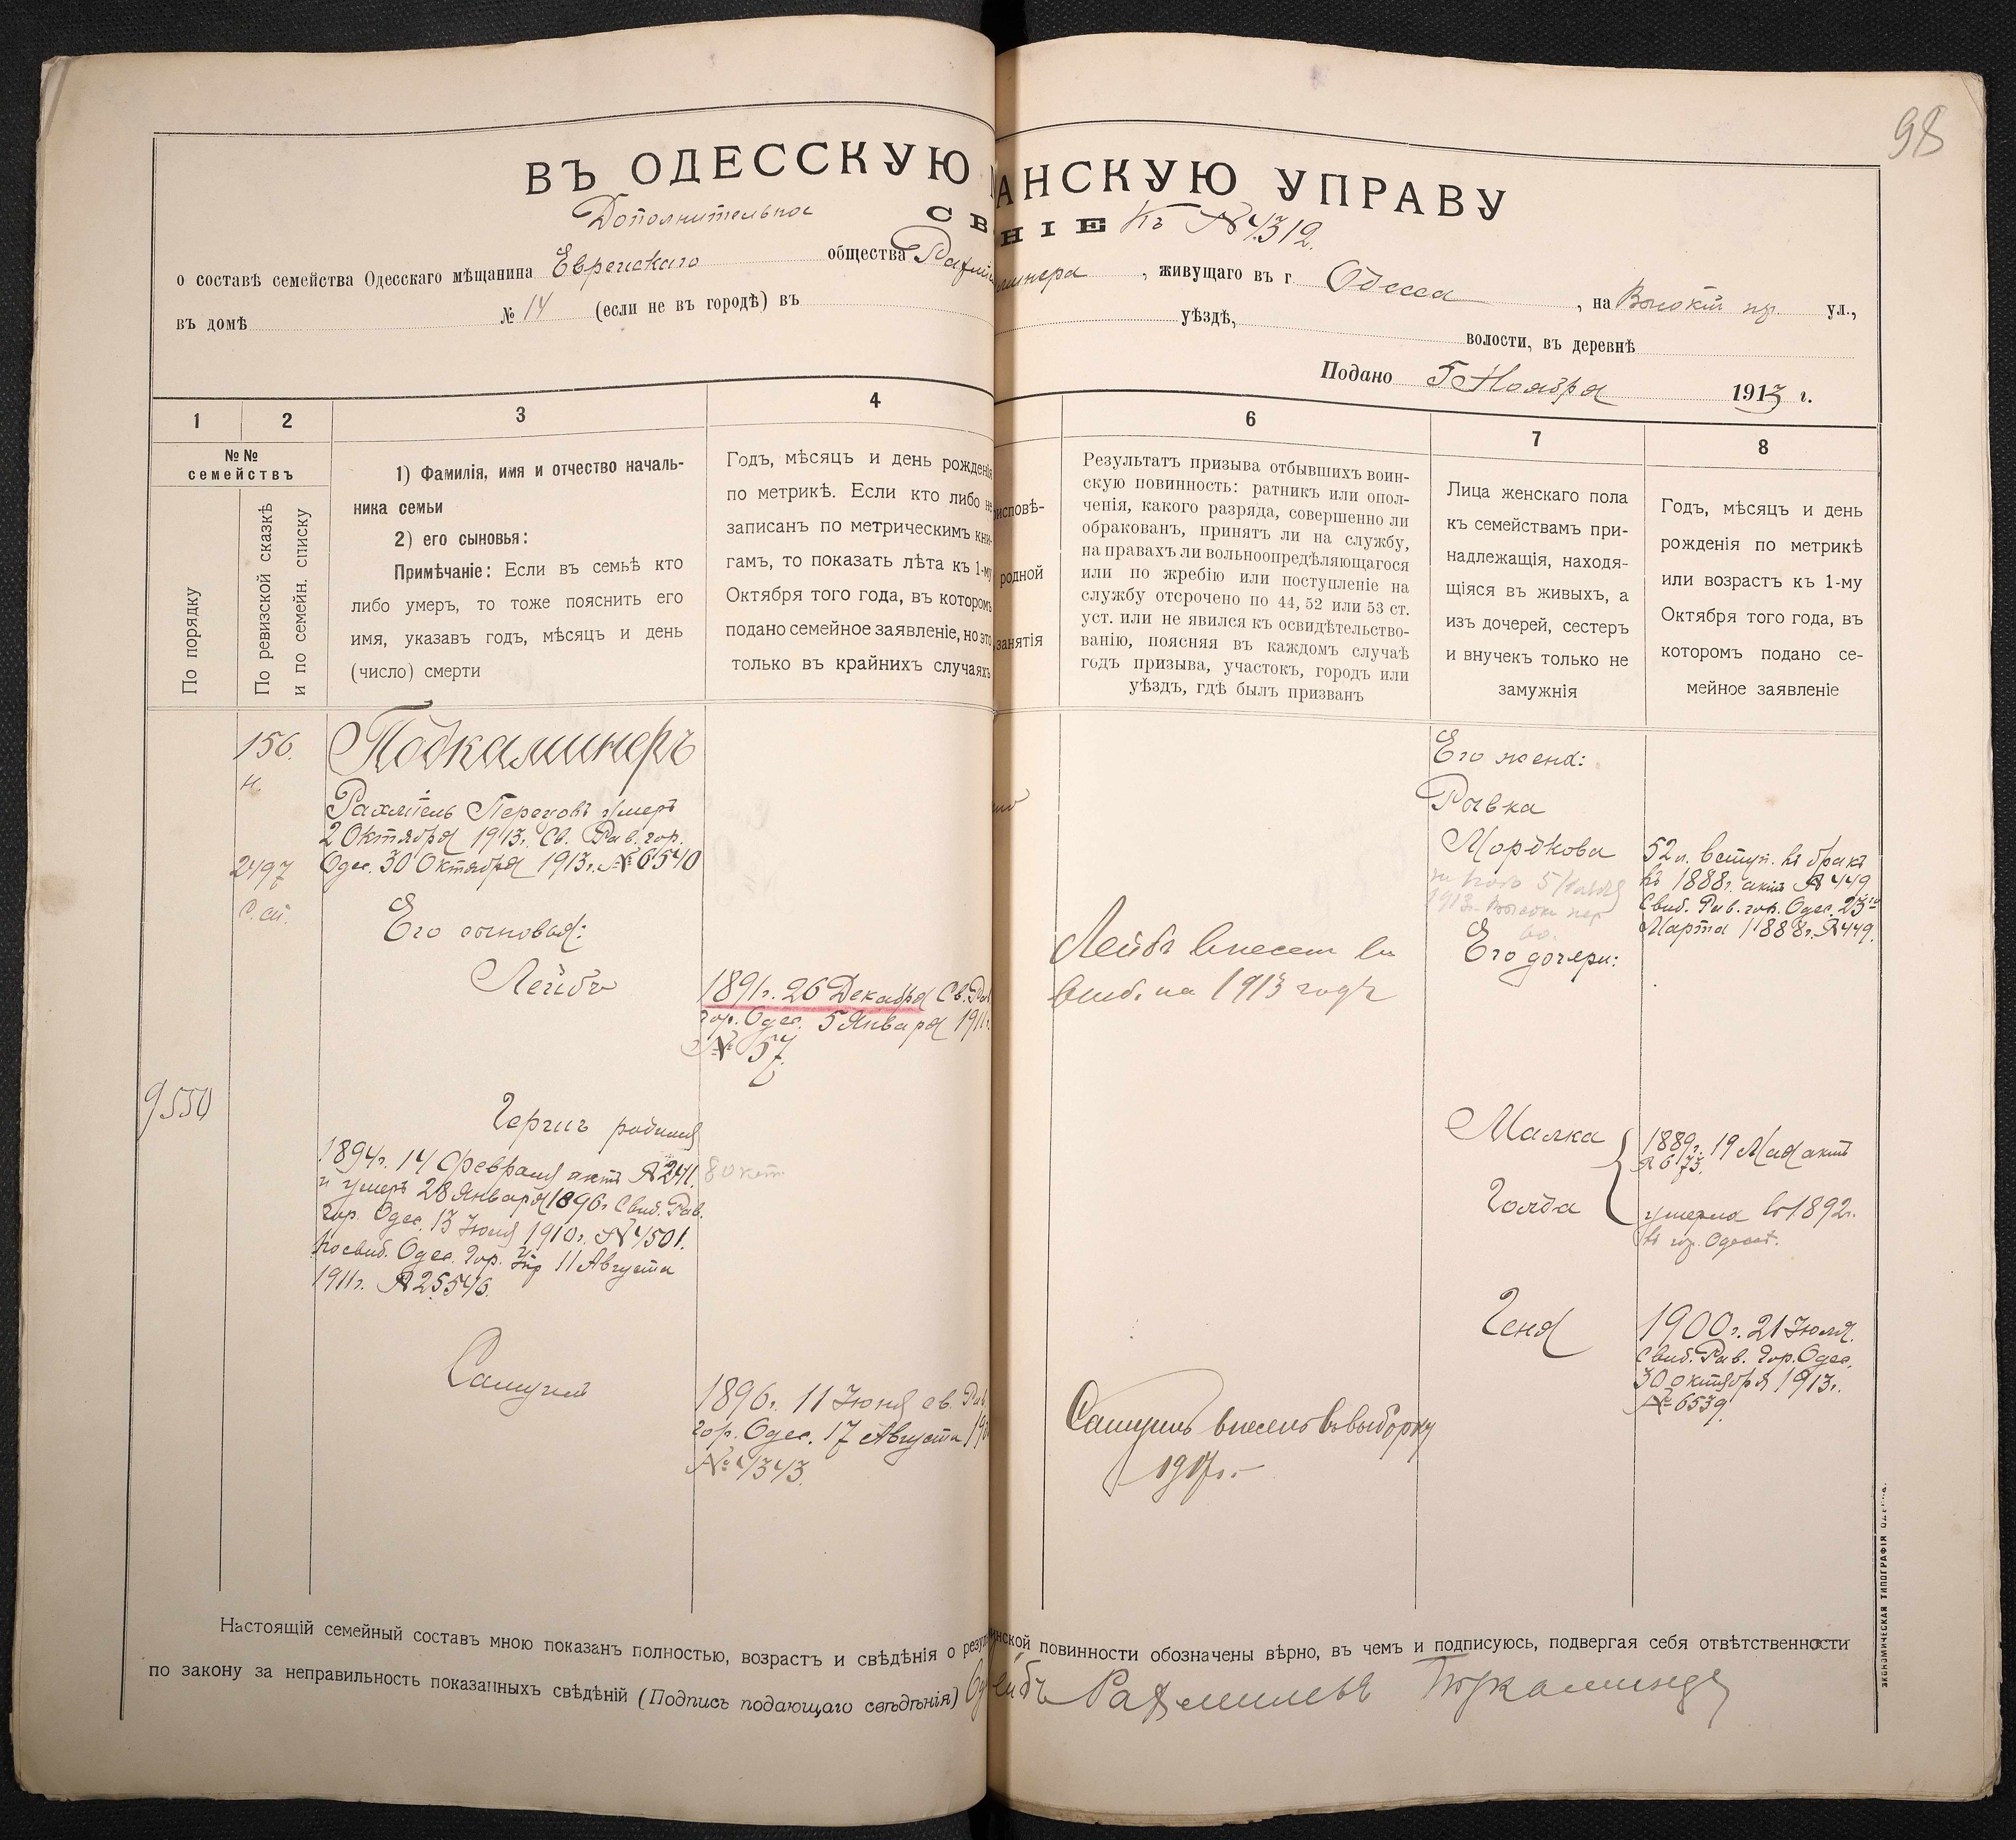 98
ВЪ ОДЕССКУЮ АНСКУЮ УПРАВУ
Дополнительное СВ НІЕ Къ № 4312.
о составѣ семейства Одесскаго мѣщанина Еврейскаго общества Рахми минера, живущаго въ г. Одесса, на Высокій пр. ул.,
въ домѣ № 14 (если не въ городѣ) въ уѣздѣ, волости, въ деревнѣ
Подано 5 Ноября 1913 г.
1 2 3 4
№№
семействъ
По порядку
По ревизской сказкѣ
и по семейн. списку
1) Фамилія, имя и отчество началь-
ника семьи
2) его сыновья:
Примѣчаніе: Если въ семьѣ кто
либо умеръ, то тоже пояснить его
имя, указавъ годъ, мѣсяцъ и день
(число) смерти
Годъ, мѣсяцъ и день рожденія
по метрикѣ. Если кто либо не
записанъ по метрическимъ кни-
гамъ, то показать лѣта къ 1-му
Октября того года, въ которомъ
подано семейное заявленіе, но это
только въ крайнихъ случаяхъ
исповѣ-
родной
занятія
6 7 8
Результатъ призыва отбывшихъ воин-
скую повинность: ратникъ или опол-
ченія, какого разряда, совершенно ли
обракованъ, принятъ ли на службу,
на правахъ ли вольноопредѣляющагося
или по жребію или поступленіе на
службу отсрочено по 44, 52 или 53 ст.
уст. или не явился къ освидѣтельство-
ванію, поясняя въ каждомъ случаѣ
годъ призыва, участокъ, городъ или
уѣздъ, гдѣ былъ призванъ
Лица женскаго пола
къ семействамъ при-
надлежащія, находя-
щіяся въ живыхъ, а
изъ дочерей, сестеръ
и внучекъ только не
замужнія
Годъ, мѣсяцъ и день
рожденія по метрикѣ
или возрастъ къ 1-му
Октября того года, въ
которомъ подано се-
мейное заявленіе
156.
н.
2497
9550
Подкаминеръ
Рахмиель Перецовъ умеръ
2 Октября 1913г. Св. Рав. гор.
Одес. 30 Октября 1913г. № 6540
Его сыновья:
Лейбъ
1891г. 26 Декабря Св. Рав
гор. Одес. 5 Января 1911г.
№ 57.
Герши родился
1894г. 14 Февраля актъ № 241.
и умеръ 28 Января 1896г. Свид. Рав.
гор. Одес. 13 Іюля 1910г. № 4501.
по свид. Одес. Гор. Упр 11 Августа
1911г. № 25546.
Самуил
1896г. 11 Іюня св. Рав
гор. Одес. 17 Августа
№ 4343.
Лейбъ внесен въ
выб. на 1913 годъ
Самуилъ внесенъ въ выборку
1917г.
Его жена:
Рывка
Мордкова
52 л. вступ. въ бракъ
въ 1888г. актъ № 449
Свид. Рав. гор. Одес. 23го
Марта 1888г. № 449.
Его дочери:
Малка
1889г. 19 Мая актъ
№ 673.
Голда
умерла въ 1892г.
въ гор. Одессѣ.
Геня
1900г. 21 Іюля.
Свид. Рав. Гор. Одес.
30 октября 1913г.
№ 6539.
Настоящій семейный составъ мною показанъ полностью, возрастъ и свѣдѣнія о резул инской повинности обозначены вѣрно, въ чемъ и подписуюсь, подвергая себя отвѣтственности
по закону за неправильность показанныхъ свѣдѣній (Подпись подающаго свѣдѣнія) ейбъ Рахмилевъ Подкаминеръ
ЭКОНОМИЧЕСКАЯ ТИПОГРАФІЯ